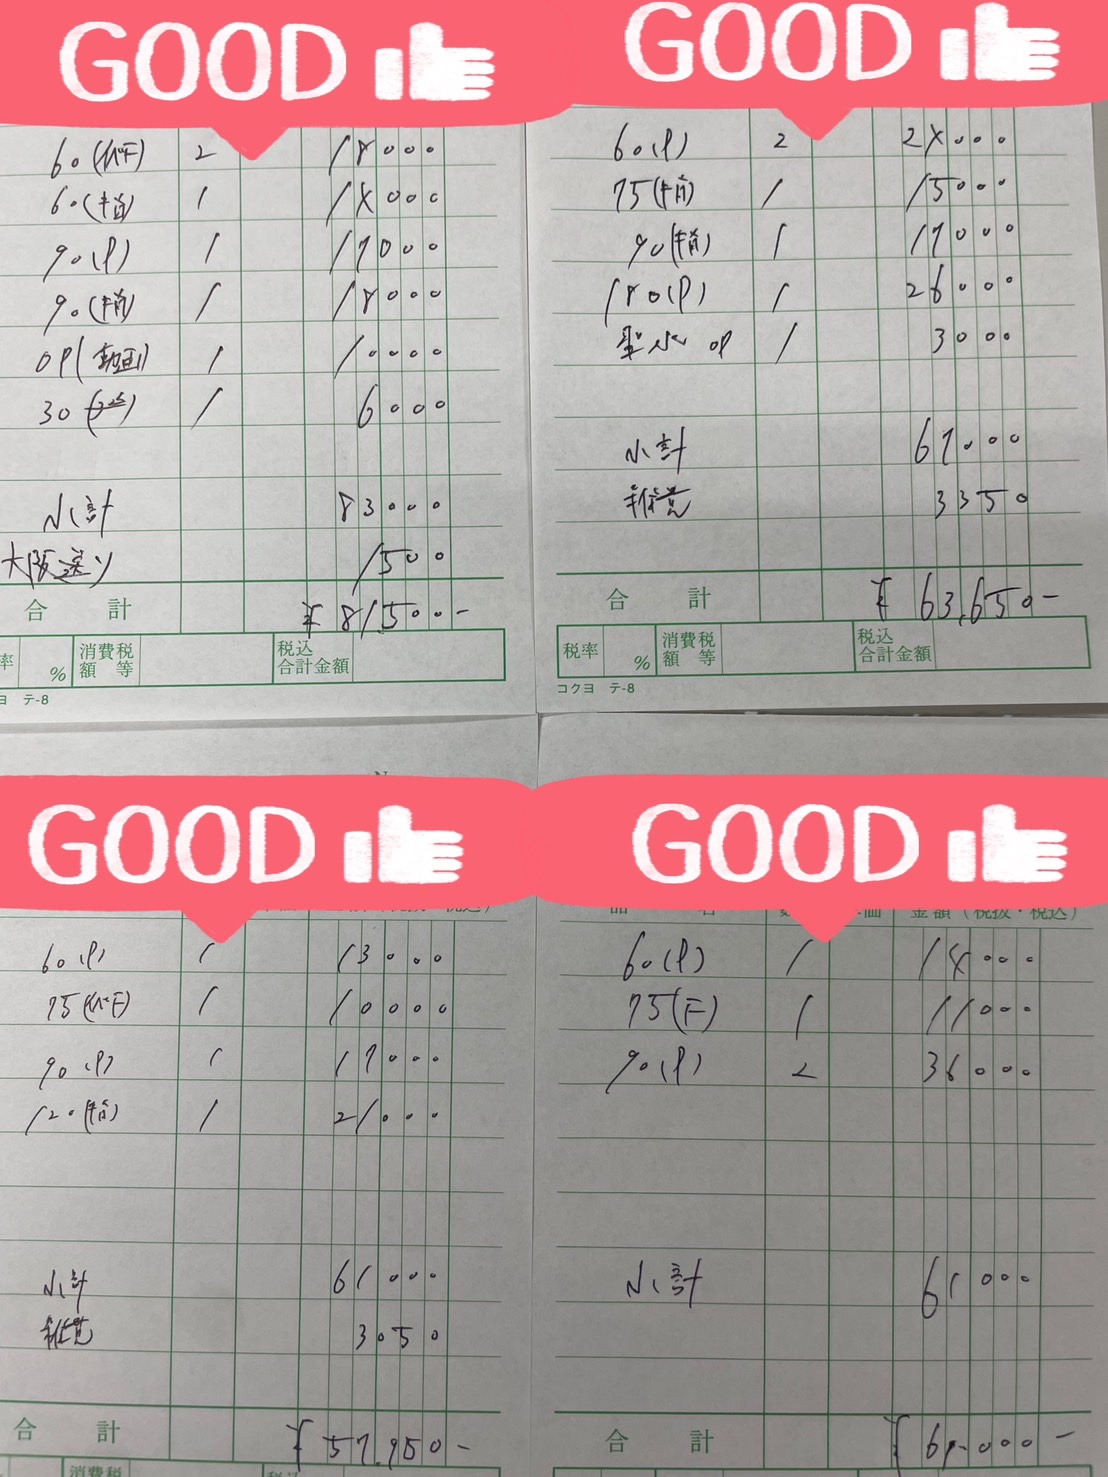 GOOD
60(代下) 2 18000
60(指) 1 14000
90(P) 1 17000
90(指) 1 18000
OP(動画) 1 10000
30 1 6000
小計 83000
大阪送り 1500
合計 ¥81,500-
率 % 消費税額等 税込合計金額
ヨ テ-8
GOOD
60(P) 2 24000
75(指) 1 15000
90(指) 1 17000
180(P) 1 26000
聖水 OP 1 3000
小計 67000
雑費 3350
合計 ¥63,650-
税率 % 消費税額等 税込合計金額
コクヨ テ-8
GOOD
60(P) 1 13000
75(代下) 1 10000
90(P) 1 17000
120(指) 1 21000
小計 61000
雑費 3050
合計 ¥57,950-
消費税 税込
GOOD
品名 金額(税抜・税込)
60(P) 1 14000
75(F) 1 11000
90(P) 2 36000
小計 61000
合計 ¥61,000-